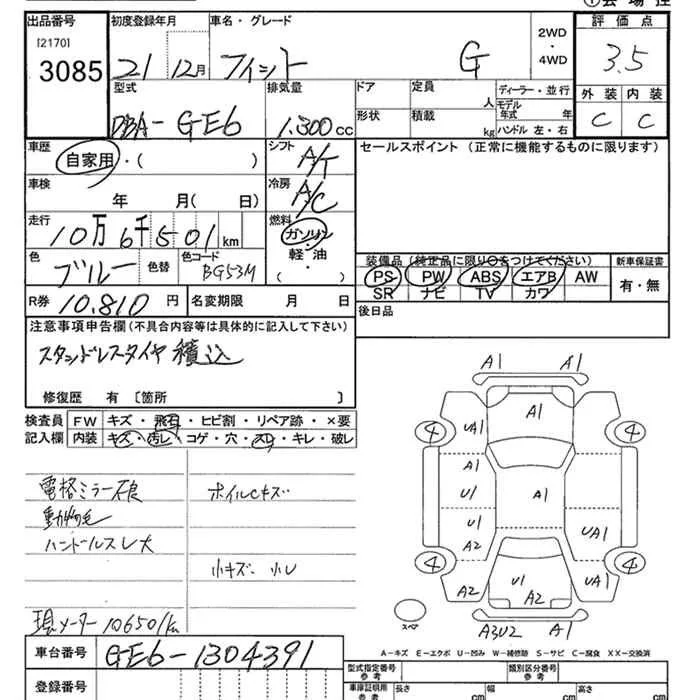 ①会場控
出品番号 初度登録年月 車名・グレード 2WD・4WD 評価点
[2170]
3085 21 12月 フィット G 3.5
型式 排気量 ドア 定員 人 ディーラー・並行 外装 内装
DBA-GE6 1.300cc 形状 積載 kg モデル年式 年 ハンドル 左・右 C C
車歴 自家用・( ) シフト A/T セールスポイント (正常に機能するものに限ります)
車検 年 月( 日) 冷房 A/C
走行 10万6千501km 燃料 ガソリン・軽・油・( )
色 ブルー 色替 色コード BG53M
装備品 (純正品に限り○をつけてください) 新車保証書
PS PW ABS エアB AW 有・無
SR ナビ TV カワ
R券 10.810円 名変期限 月 日 後日品
注意事項申告欄(不具合内容等は具体的に記入して下さい)
スタッドレスタイヤ 積込
修復歴 有 〔箇所 〕
検査員記入欄 FW キズ・飛石・ヒビ割・リペア跡・×要
内装 キズ・汚し・コゲ・穴・スレ・キレ・破レ
電格ミラー
動物毛
ハンドルスレ大
小キズ・小U
現メーター 106501km
A1 A1
A1
4 UA1 4
A1
U1 A1
U1 UA1
A2
4 UA1 4
A2 U1 A2
スペア A3U2 A1
A-キズ E-エクボ U-凹み W-補修跡 S-サビ C-腐食 XX-交換済
車台番号 GE6-1304391
型式指定番号 参考 類別区分番号 参考
登録番号 車庫証明用 参考 長さ cm 幅 cm 高さ cm